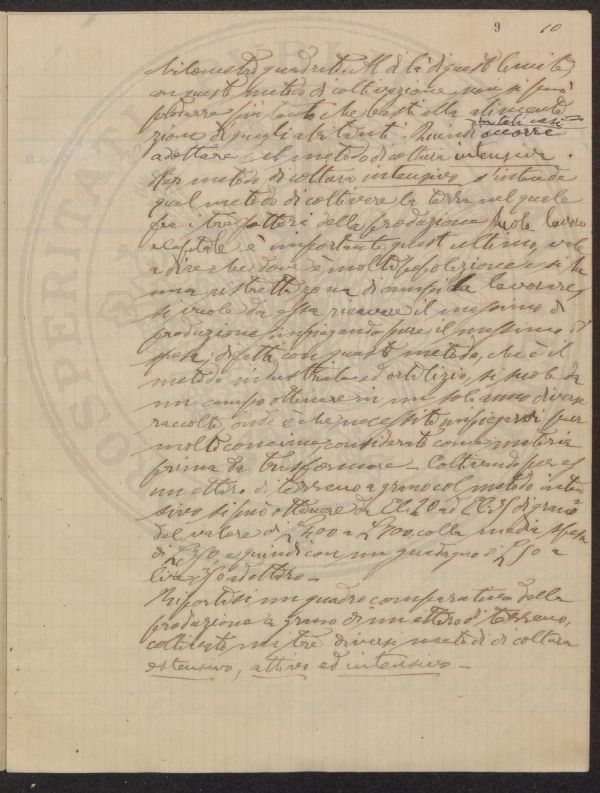 9 10
kilometro quadrato. Al di là di questo limite,
con questo metodo di coltivazione non si può
produrre più tanto che basti alla alimenta
zione di quegli abitanti. Quindi in tali casi occorre
adottare il metodo di coltura intensiva.
Per metodo di coltura intensivo s'intende
quel metodo di coltivare la terra nel quale
fra i tre fattori della produzione suolo lavoro
e capitale è importante quest'ultimo, vale
a dire che dove è molta popolazione e si ha
una ristretta zona di campi da lavorare,
si vuole da essa ricavare il massimo di
produzione impiegando pure il massimo di
spesa; difatti con questo metodo, che è il
metodo industriale ed ortilizio, si suole da
un campo ottenere in un solo anno diversi
raccolti, onde è che necessita impiegarvi pur
molto concime considerato come materia
prima da trasformare. Coltivando per es.
un ettaro di terreno a grano col metodo inten
sivo si può ottenere da El. 20 ad El. 35 di grano
del valore di £ 400 a £ 700, colla media spesa
di £ 350, e quindi con un guadagno di £ 50 a
lire 350 ad ettaro.
Riportasi un quadro comparativo della
produzione a grano di un ettaro di terreno,
coltivato nei tre diversi metodi di coltura
estensivo, attivo ed intensivo.